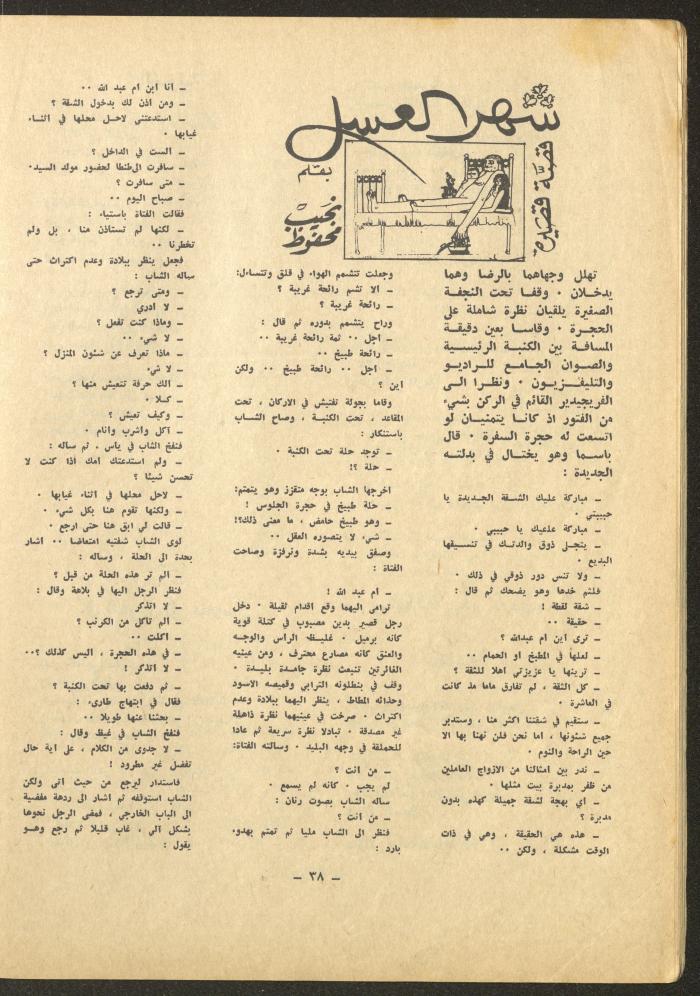 شهر العسل
قصة قصيرة
بقلم
نجيب
محفوظ
تهلل وجهاهما بالرضا وهما
يدخلان ٠ وقفا تحت النجفة
الصغيرة يلقيان نظرة شاملة على
الحجرة ٠ وقاسا بعين دقيقة
المسافة بين الكنبة الرئيسية
والصوان الجامع للراديو
والتليفزيون ٠ ونظرا الى
الفريجيدير القائم في الركن بشيء
من الفتور اذ كانا يتمنيان لو
اتسعت له حجرة السفرة ٠ قال
باسما وهو يختال في بدلته
الجديدة :
ـ مباركة عليك الشقة الجديدة يا
حبيبتي ٠
ـ مباركة علعيك يا حبيبي ٠
ـ يتجلى ذوق والدتك في تنسيقها
البديع ٠
ـ ولا تنس دور ذوقي في ذلك ٠
فلثم خدها وهو يضحك ثم قال :
ـ شقة لقطة !
ـ حقيقة ٠٠
ـ ترى أين أم عبدالله ؟
ـ لعلها في المطبخ أو الحمام ٠٠
ـ ترينها يا عزيزتي اهلا للثقة ؟
ـ كل الثقة ، لم تفارق ماما مذ كانت
في العاشرة ٠
ـ ستقيم في شقتنا اكثر منا ، وستدير
جميع شئونها ، اما نحن فلن نهنا بها الا
حين الراحة والنوم ٠
ـ ندر بين أمثالنا من الازواج العاملين
من ظفر بمديرة بيت مثلها ٠
ـ أي بهجة لشقة جميلة كهذه بدون
مديرة ؟
ـ هذه هي الحقيقة ، وهي في ذات
الوقت مشكلة ، ولكن ٠٠
وجعلت تتشمم الهواء في قلق وتتساءل:
ـ الا تشم رائحة غريبة ؟
ـ رائحة غريبة ؟
وراح يتشمم بدوره ثم قال :
ـ أجل ٠٠ ثمة رائحة غريبة ٠٠
ـ رائحة طبيخ ٠٠
ـ أجل ٠٠ رائحة طبيخ ٠٠ ولكن
أين ؟
وقاما بجولة تفتيش في الاركان ، تحت
المقاعد ، تحت الكنبة ، وصاح الشاب
باستنكار :
ـ توجد حلة تحت الكنبة ٠
ـ حلة ؟!
أخرجها الشاب بوجه متقزز وهو يتمتم:
ـ حلة طبيخ في حجرة الجلوس !
ـ وهو طبيخ حامض ، ما معنى ذلك؟!
ـ شيء لا يتصوره العقل ٠٠
وصفق بيديه بشدة ونرفزة وصاحت
الفتاة :
ـ أم عبد الله !
ترامى اليهما وقع اقدام ثقيلة ٠ دخل
رجل قصير بدين مصبوب في كتلة قوية
كانه برميل ٠ غليظ الراس والوجه
والعنق كأنه مصارع محترف ، ومن عينيه
الغائرتين تنبعث نظرة جامدة بليدة ٠
وقف في بنطلونه الترابي وقميصه الاسود
وحذائه المطاط ، ينظر اليهما ببلادة وعدم
اكتراث ٠ صرخت في عينيهما نظرة ذاهلة
غير مصدقة ٠ تبادلا نظرة سريعة ثم عادا
للحملقة في وجهه البليد ٠ وسألته الفتاة:
ـ من أنت ؟
لم يجب ٠ كأنه لم يسمع ٠
سأله الشاب بصوت رنان :
ـ من أنت ؟
فنظر الى الشاب مليا ثم تمتم بهدوء
بارد :
ـ أنا ابن أم عبد الله ٠٠
ـ ومن أذن لك بدخول الشقة ؟
ـ استدعتني لاحل محلها في أثناء
غيابها ٠
ـ ألست في الداخل ؟
ـ سافرت الى طنطا لحضور مولد السيد٠
ـ متى سافرت ؟
ـ صباح اليوم ٠٠
فقالت الفتاة باستياء :
ـ لكنها لم تستاذن منا ، بل ولم
تخطرنا ٠٠
فجعل ينظر ببلادة وعدم اكتراث حتى
سأله الشاب :
ـ ومتى ترجع ؟
ـ لا أدري
ـ وماذا كنت تفعل ؟
ـ لا شيء ٠٠
ـ ماذا تعرف عن شئون المنزل ؟
ـ لا شيء
ـ ألك حرفة تتعيش منها ؟
ـ كلا ٠
ـ وكيف تعيش ؟
ـ آكل واشرب وأنام ٠
فنفخ الشاب في يأس ٠ ثم ساله :
ـ ولم استدعتك امك اذا كنت لا
تحسن شيئا ؟
ـ لاحل محلها في أثناء غيابها ٠
ـ ولكنها تقوم هنا بكل شيء ٠
ـ قالت لي ابق هنا حتى ارجع ٠
لوى الشاب شفتيه امتعاضا ٠٠ أشار
بحدة الى الحلة ، وساله :
ـ ألم تر هذه الحلة من قبل ؟
فنظر الرجل اليها في بلاهة وقال :
ـ لا اتذكر
ـ ألم تأكل من الكرنب ؟
ـ اكلت ٠٠
ـ في هذه الحجرة ، أليس كذلك ؟٠٠
ـ لا أتذكر !
ـ ثم دفعت بها تحت الكنبة ؟
فقال في ابتهاج طارىء :
ـ بحثنا عنها طويلا ٠٠
فنفخ الشاب في غيظ وقال :
ـ لا جدوى من الكلام ، على أية حال
تفضل غير مطرود !
فاستدار ليرجع من حيث أتى ولكن
الشاب استوقفه ثم أشار الى ردهة مفضية
الى الباب الخارجي ، فمضى الرجل نحوها
بشكل آلي ، غاب قليلا ثم رجع وهو
يقول :
ـ ٣٨ ـ